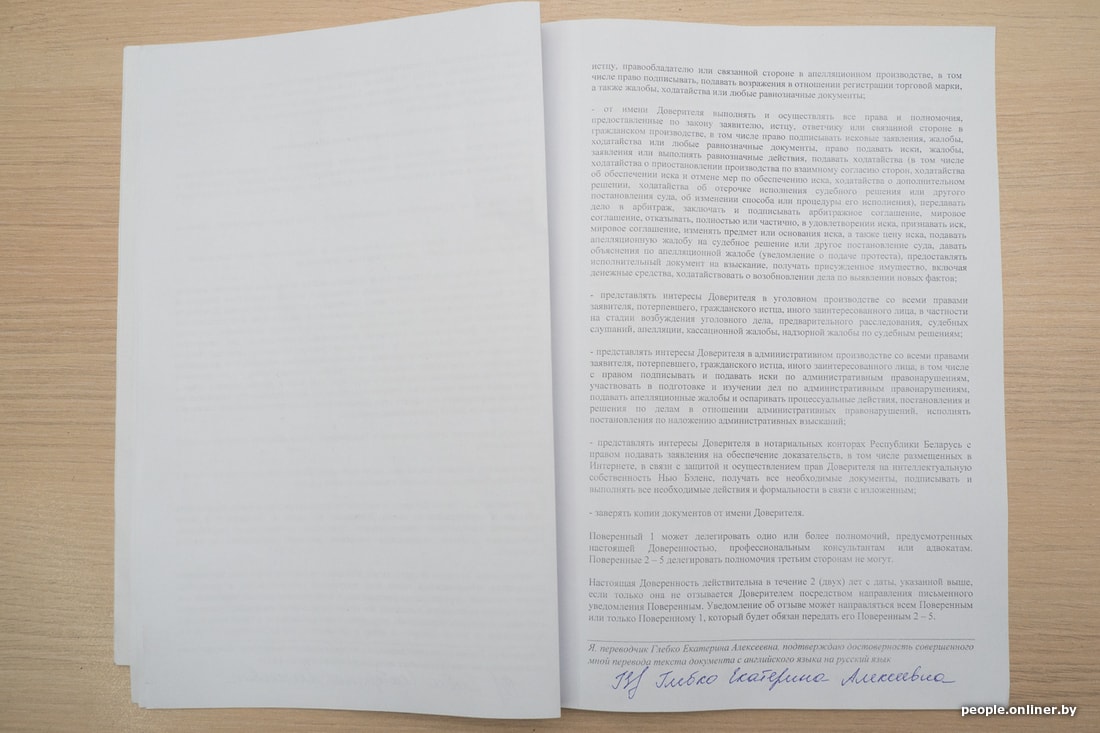 истцу, правообладателю или связанной стороне в апелляционном производстве, в том
числе право подписывать, подавать возражения в отношении регистрации торговой марки,
а также жалобы, ходатайства или любые равнозначные документы;
- от имени Доверителя выполнять и осуществлять все права и полномочия,
предоставленные по закону заявителю, истцу, ответчику или связанной стороне в
гражданском производстве, в том числе право подписывать исковые заявления, жалобы,
ходатайства или любые равнозначные документы, право подавать иски, жалобы,
заявления или выполнять равнозначные действия, подавать ходатайства (в том числе
ходатайства о приостановлении производства по взаимному согласию сторон, ходатайства
об обеспечении иска и отмене мер по обеспечению иска, ходатайства о дополнительном
решении, ходатайства об отсрочке исполнения судебного решения или другого
постановления суда, об изменении способа или процедуры его исполнения), передавать
дело в арбитраж, заключать и подписывать арбитражное соглашение, мировое
соглашение, отказывать, полностью или частично, в удовлетворении иска, признавать иск,
мировое соглашение, изменять предмет или основания иска, а также цену иска, подавать
апелляционную жалобу на судебное решение или другое постановление суда, давать
объяснения по апелляционной жалобе (уведомление о подаче протеста), предоставлять
исполнительный документ на взыскание, получать присужденное имущество, включая
денежные средства, ходатайствовать о возобновлении дела по выявлении новых фактов;
- представлять интересы Доверителя в уголовном производстве со всеми правами
заявителя, потерпевшего, гражданского истца, иного заинтересованного лица, в частности
на стадии возбуждения уголовного дела, предварительного расследования, судебных
слушаний, апелляции, кассационной жалобы, надзорной жалобы по судебным решениям;
- представлять интересы Доверителя в административном производстве со всеми правами
заявителя, потерпевшего, гражданского истца, иного заинтересованного лица, в том числе
с правом подписывать и подавать иски по административным правонарушениям,
участвовать в подготовке и изучении дел по административным правонарушениям,
подавать апелляционные жалобы и оспаривать процессуальные действия, постановления и
решения по делам в отношении административных правонарушений, исполнять
постановления по наложению административных взысканий;
- представлять интересы Доверителя в нотариальных конторах Республики Беларусь с
правом подавать заявления на обеспечение доказательств, в том числе размещенных в
Интернете, в связи с защитой и осуществлением прав Доверителя на интеллектуальную
собственность Нью Бэленс, получать все необходимые документы, подписывать и
выполнять все необходимые действия и формальности в связи с изложенным;
- заверять копии документов от имени Доверителя.
Поверенный 1 может делегировать одно или более полномочий, предусмотренных
настоящей Доверенностью, профессиональным консультантам или адвокатам.
Поверенные 2 – 5 делегировать полномочия третьим сторонам не могут.
Настоящая Доверенность действительна в течение 2 (двух) лет с даты, указанной выше,
если только она не отзывается Доверителем посредством направления письменного
уведомления Поверенным. Уведомление об отзыве может направляться всем Поверенным
или только Поверенному 1, который будет обязан передать его Поверенным 2 – 5.
Я, переводчик Глебко Екатерина Алексеевна, подтверждаю достоверность совершенного
мной перевода текста документа с английского языка на русский язык
Глебко Екатерина Алексеевна
people.onliner.by